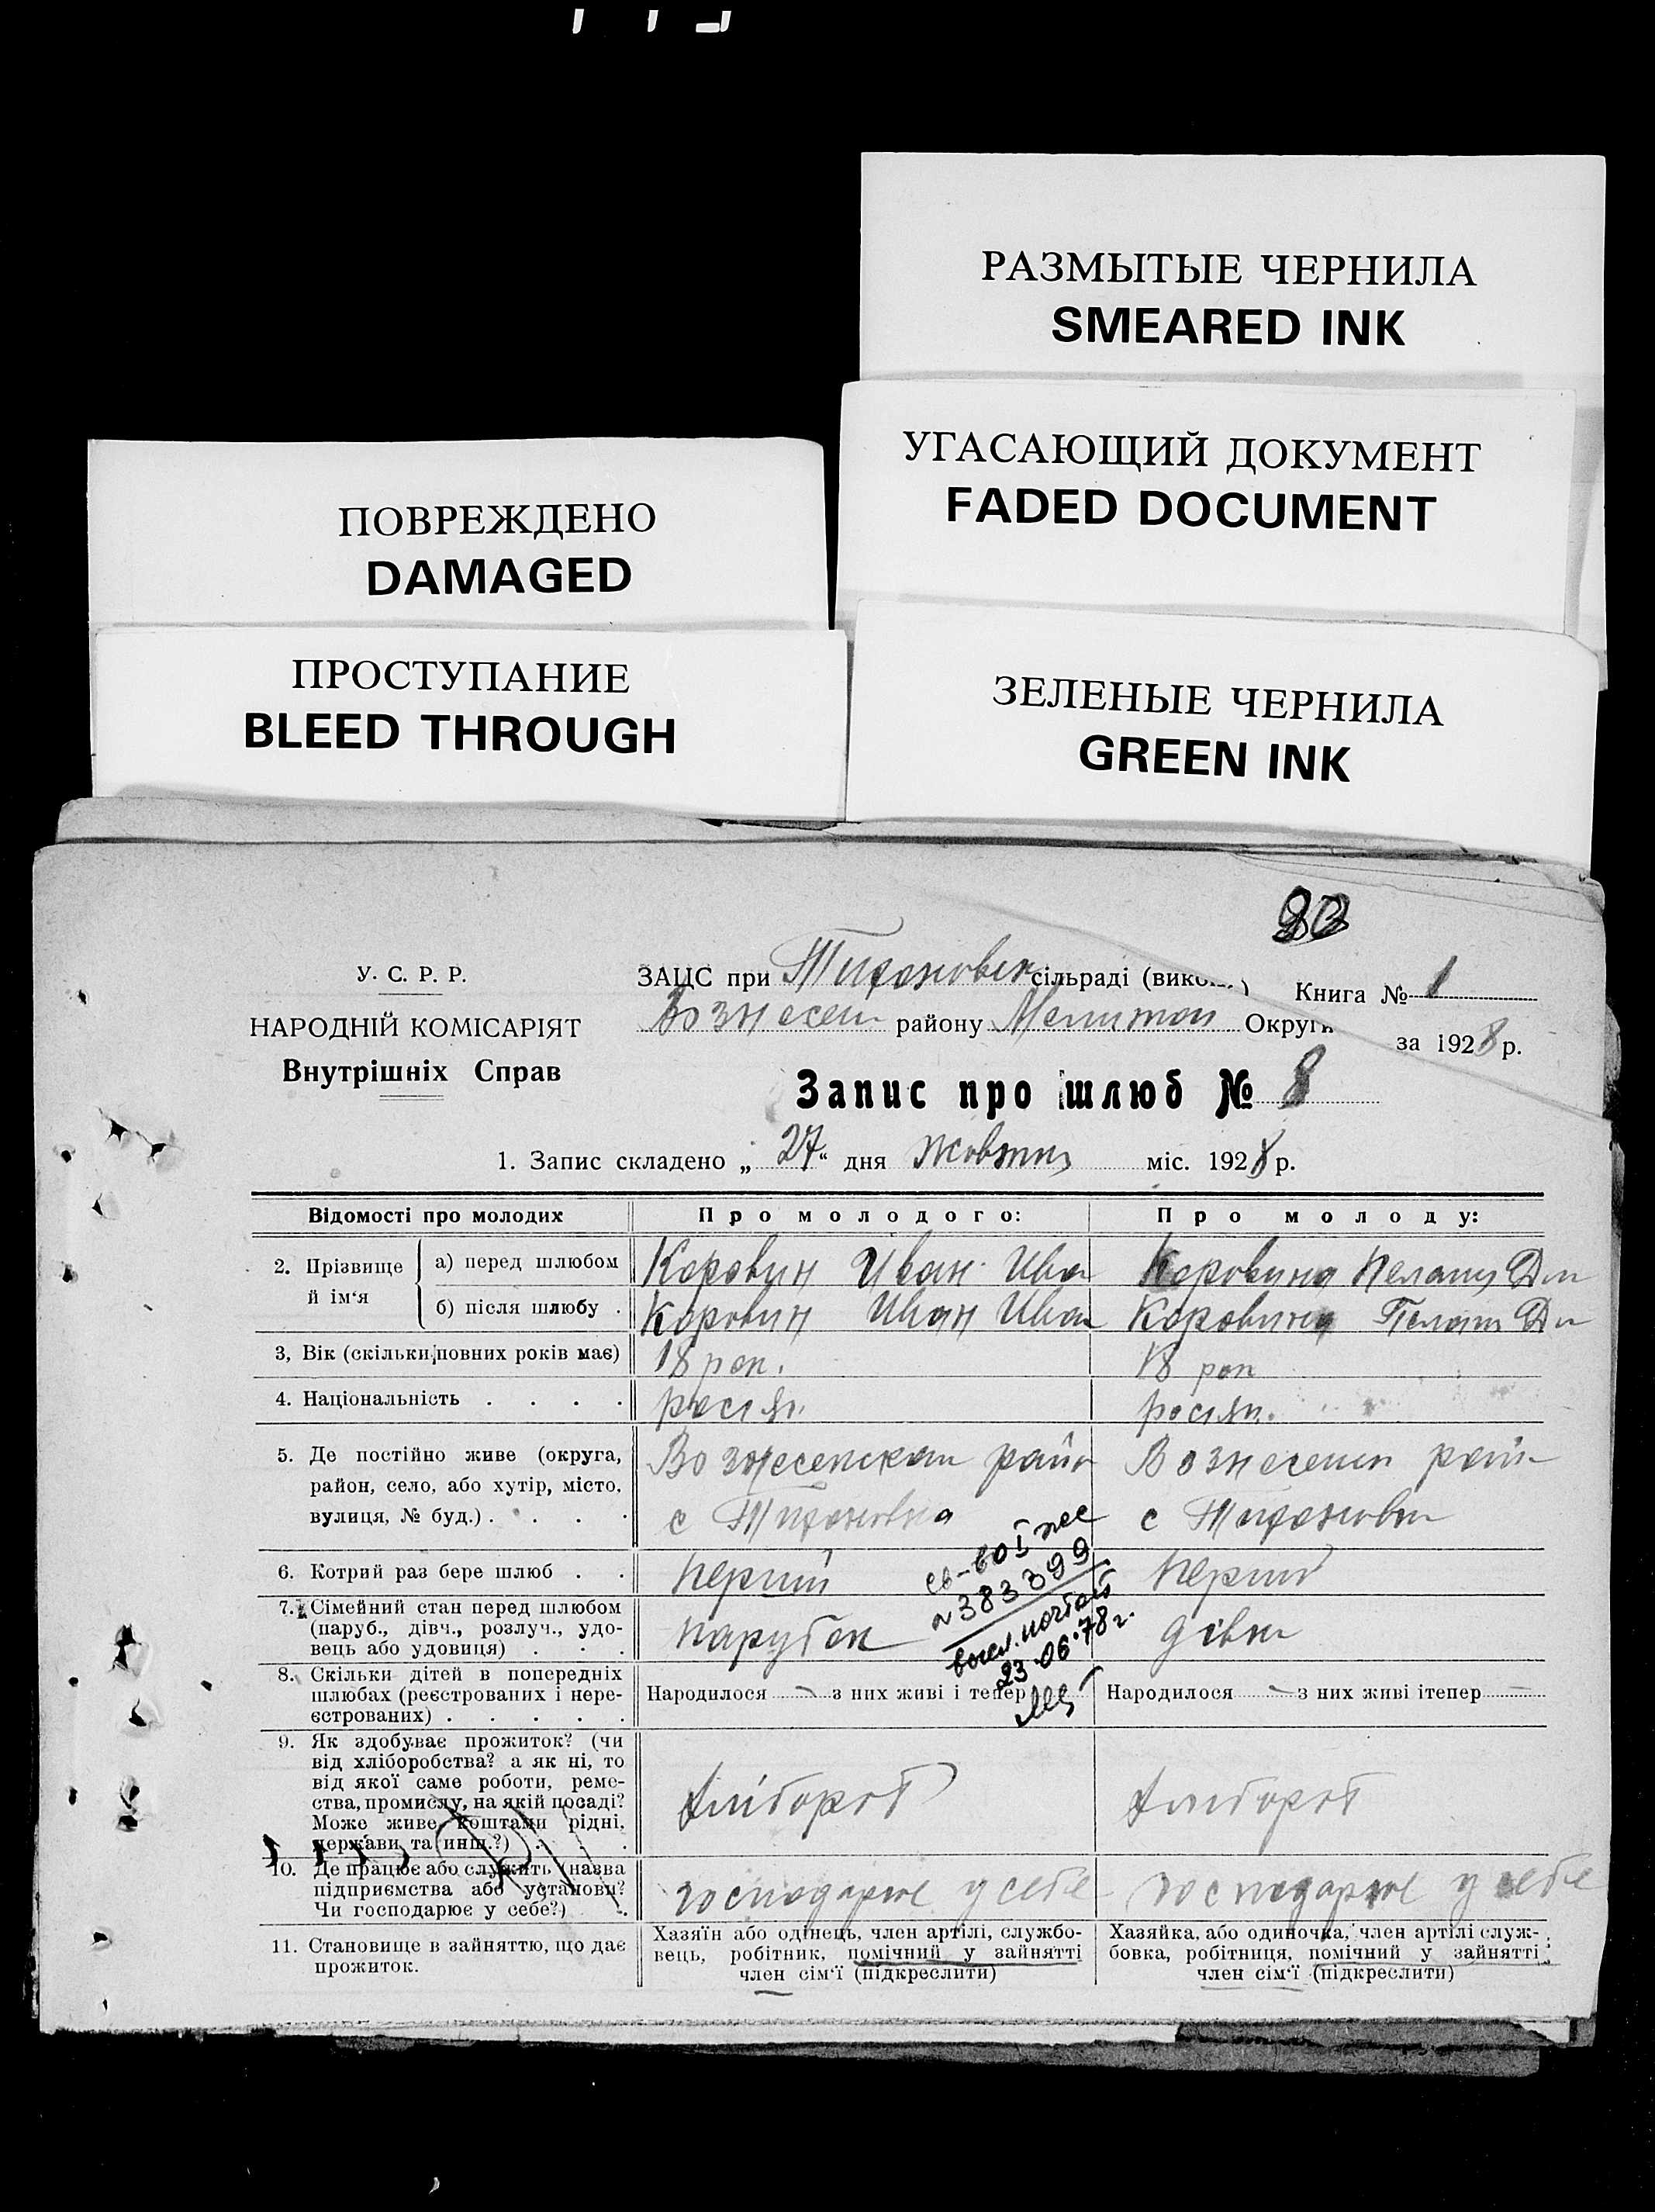 РАЗМЫТЫЕ ЧЕРНИЛА
SMEARED INK
УГАСАЮЩИЙ ДОКУМЕНТ
FADED DOCUMENT
ПОВРЕЖДЕНО
DAMAGED
ПРОСТУПАНИЕ
BLEED THROUGH
ЗЕЛЕНЫЕ ЧЕРНИЛА
GREEN INK
У. С. Р. Р.
НАРОДНІЙ КОМІСАРІЯТ
Внутрішніх Справ
ЗАЦС при сільраді
Вознесен району Мелитоп Округи
Книга № 1
за 1928 р.
Запис про шлюб № 8
1. Запис складено „ 27 “ дня Жовтня міс. 1928 р.
Відомості про молодих
Про молодого:
Про молоду:
2. Прізвище й ім‘я
а) перед шлюбом
Коровин Иван Ива
Коровина Пелагия
б) після шлюбу .
Коровин Иван Ива
Коровина Пелаги
3, Вік (скільки повних років має)
18 рок.
18 рок
4. Національність . . . .
росіян.
росіян.
5. Де постійно живе (округа,
район, село, або хутір, місто,
вулиця, № буд.) . . . . .
Вознесенском район
с
Вознесенск район
с
6. Котрий раз бере шлюб . .
перший
перший
7. Сімейний стан перед шлюбом
(паруб., дівч., розлуч., удо-
вець або удовиця) . . .
парубок
дівка
св-во I же
№ 383399
23.06.78 г.
8. Скільки дітей в попередніх
шлюбах (реєстрованих і нере-
єстрованих) . . . . .
Народилося — з них живі і тепер
Народилося — з них живі ітепер —
9. Як здобуває прожиток? (чи
від хліборобства? а як ні, то
від якої саме роботи, реме-
ства, промислу, на якій посаді?
Може живе коштами рідні,
держави та инш.?) . . .
хлібороб
хлібороб
10. Де працює або служить (назва
підприємства або установи?
Чи господарює у себе?) .
господарює у себе
господарює у себе
11. Становище в зайняттю, що дає
прожиток.
Хазяїн або одінець, член артілі, службо-
вець, робітник, помічний у зайнятті
член сім‘ї (підкреслити)
Хазяйка, або одиночка, член артілі служ-
бовка, робітниця, помічний у зайнятті
член сім‘ї (підкреслити)